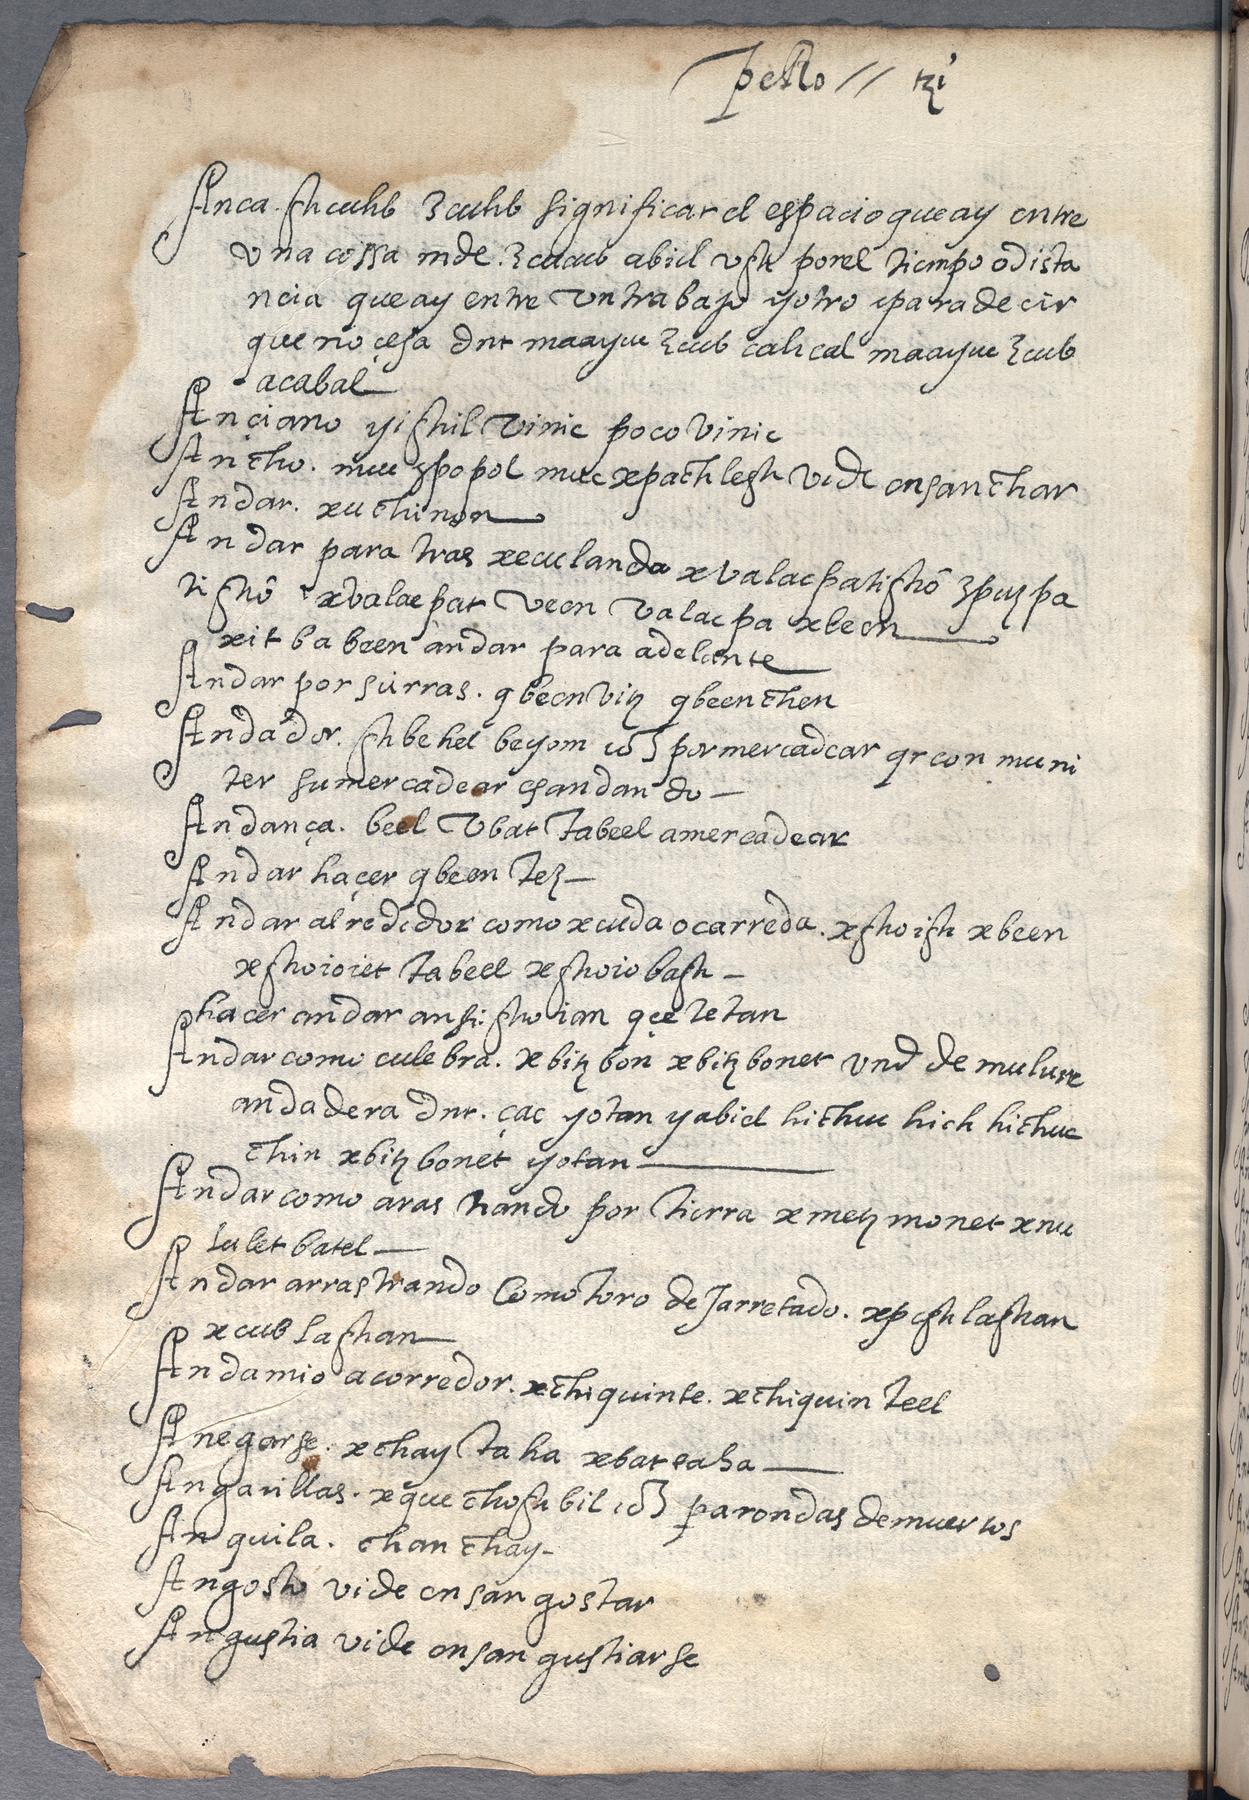 perro // tzi
Anca. shcuhb Ecuhb significar el espacio que ay entre
una cossa inde. Ecucub abiel ush por el tiempo o dista
ncia que ay entre un trabajo y otro para decir
que no çesa dnt maayuc Ecub calical maayuc Ecub
acabal
Anciano yishil vinic poco vinic
Ancho. nuc popol nuc xpachlesh vide ensanchar
Andar. xuchinon
Andar para tras xeculanda xvalacpatisho
tisho xvalacpat veen valacpa xbeen
xit ba been andar para adelante
Andar por sierras. qbeen vitz qbeen chen
Andador. shbehel beyom por mercadear qr comuni
ter su mercadear es andando
Andança. beel vbat tabeel a mercadear
Andar haçer qbeen tez
Andar al rededor como xcuda o carreda. xshoish xbeen
xshoioiet tabeel xshoiobash
hacer andar ansi shoian qçe letan
Andar como culebra. xbitzbon xbitzbonet und de muluire
andadera dnt. çac yotan yabiel hichuc hich hichuc
chin xbitzbonet yotan
Andar como arastrando por tierra xmetzmonet xnu
lulet batel
Andar arrastrando Como toro dejarretado. xpeshlashan
xcublashan
Andamio a corredor. xchiquinte. xchiquin teel
Anegarse. xchay ta ha xbat ta ha
Angarillas. xquechoshbil par ondas de muertos
Anguila. chan chay
Angosto vide ensangostar
Angustia vide ensangustiarse